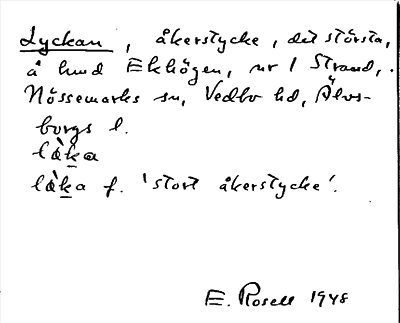 Lyckan, åkerstycke, det största,
å hmd Ekhögen, nr 1 Strand,
Nössemarks sn, Vedbo hd, Älvs-
borgs l.
lὰka
lὰka f. 'stort åkerstycke'.
E. Rosell 1948